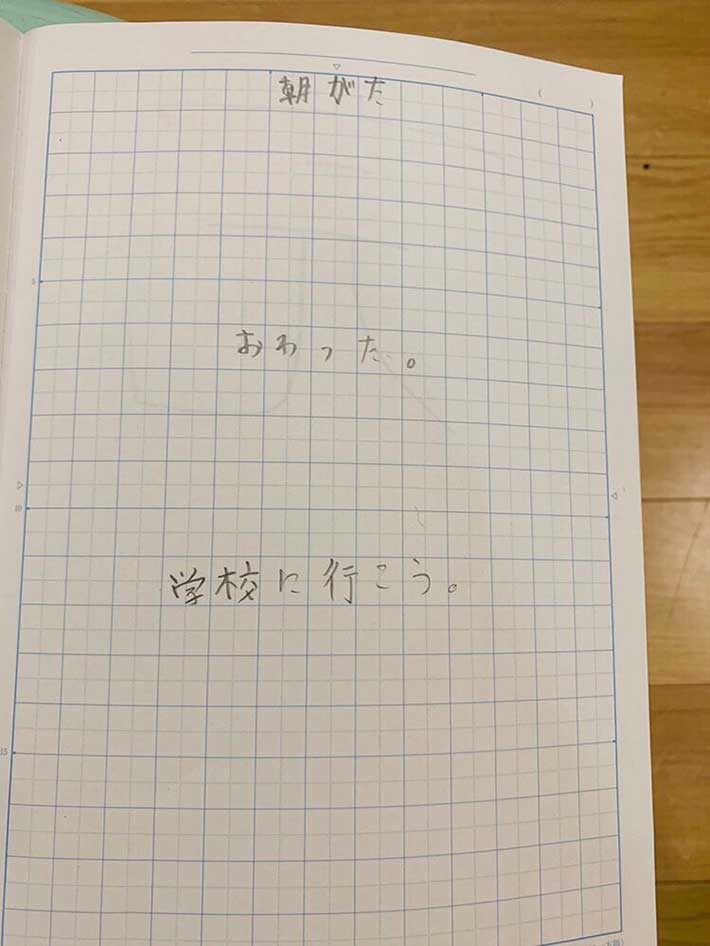 朝がた
おわった。
5
10
学校に行こう。
15